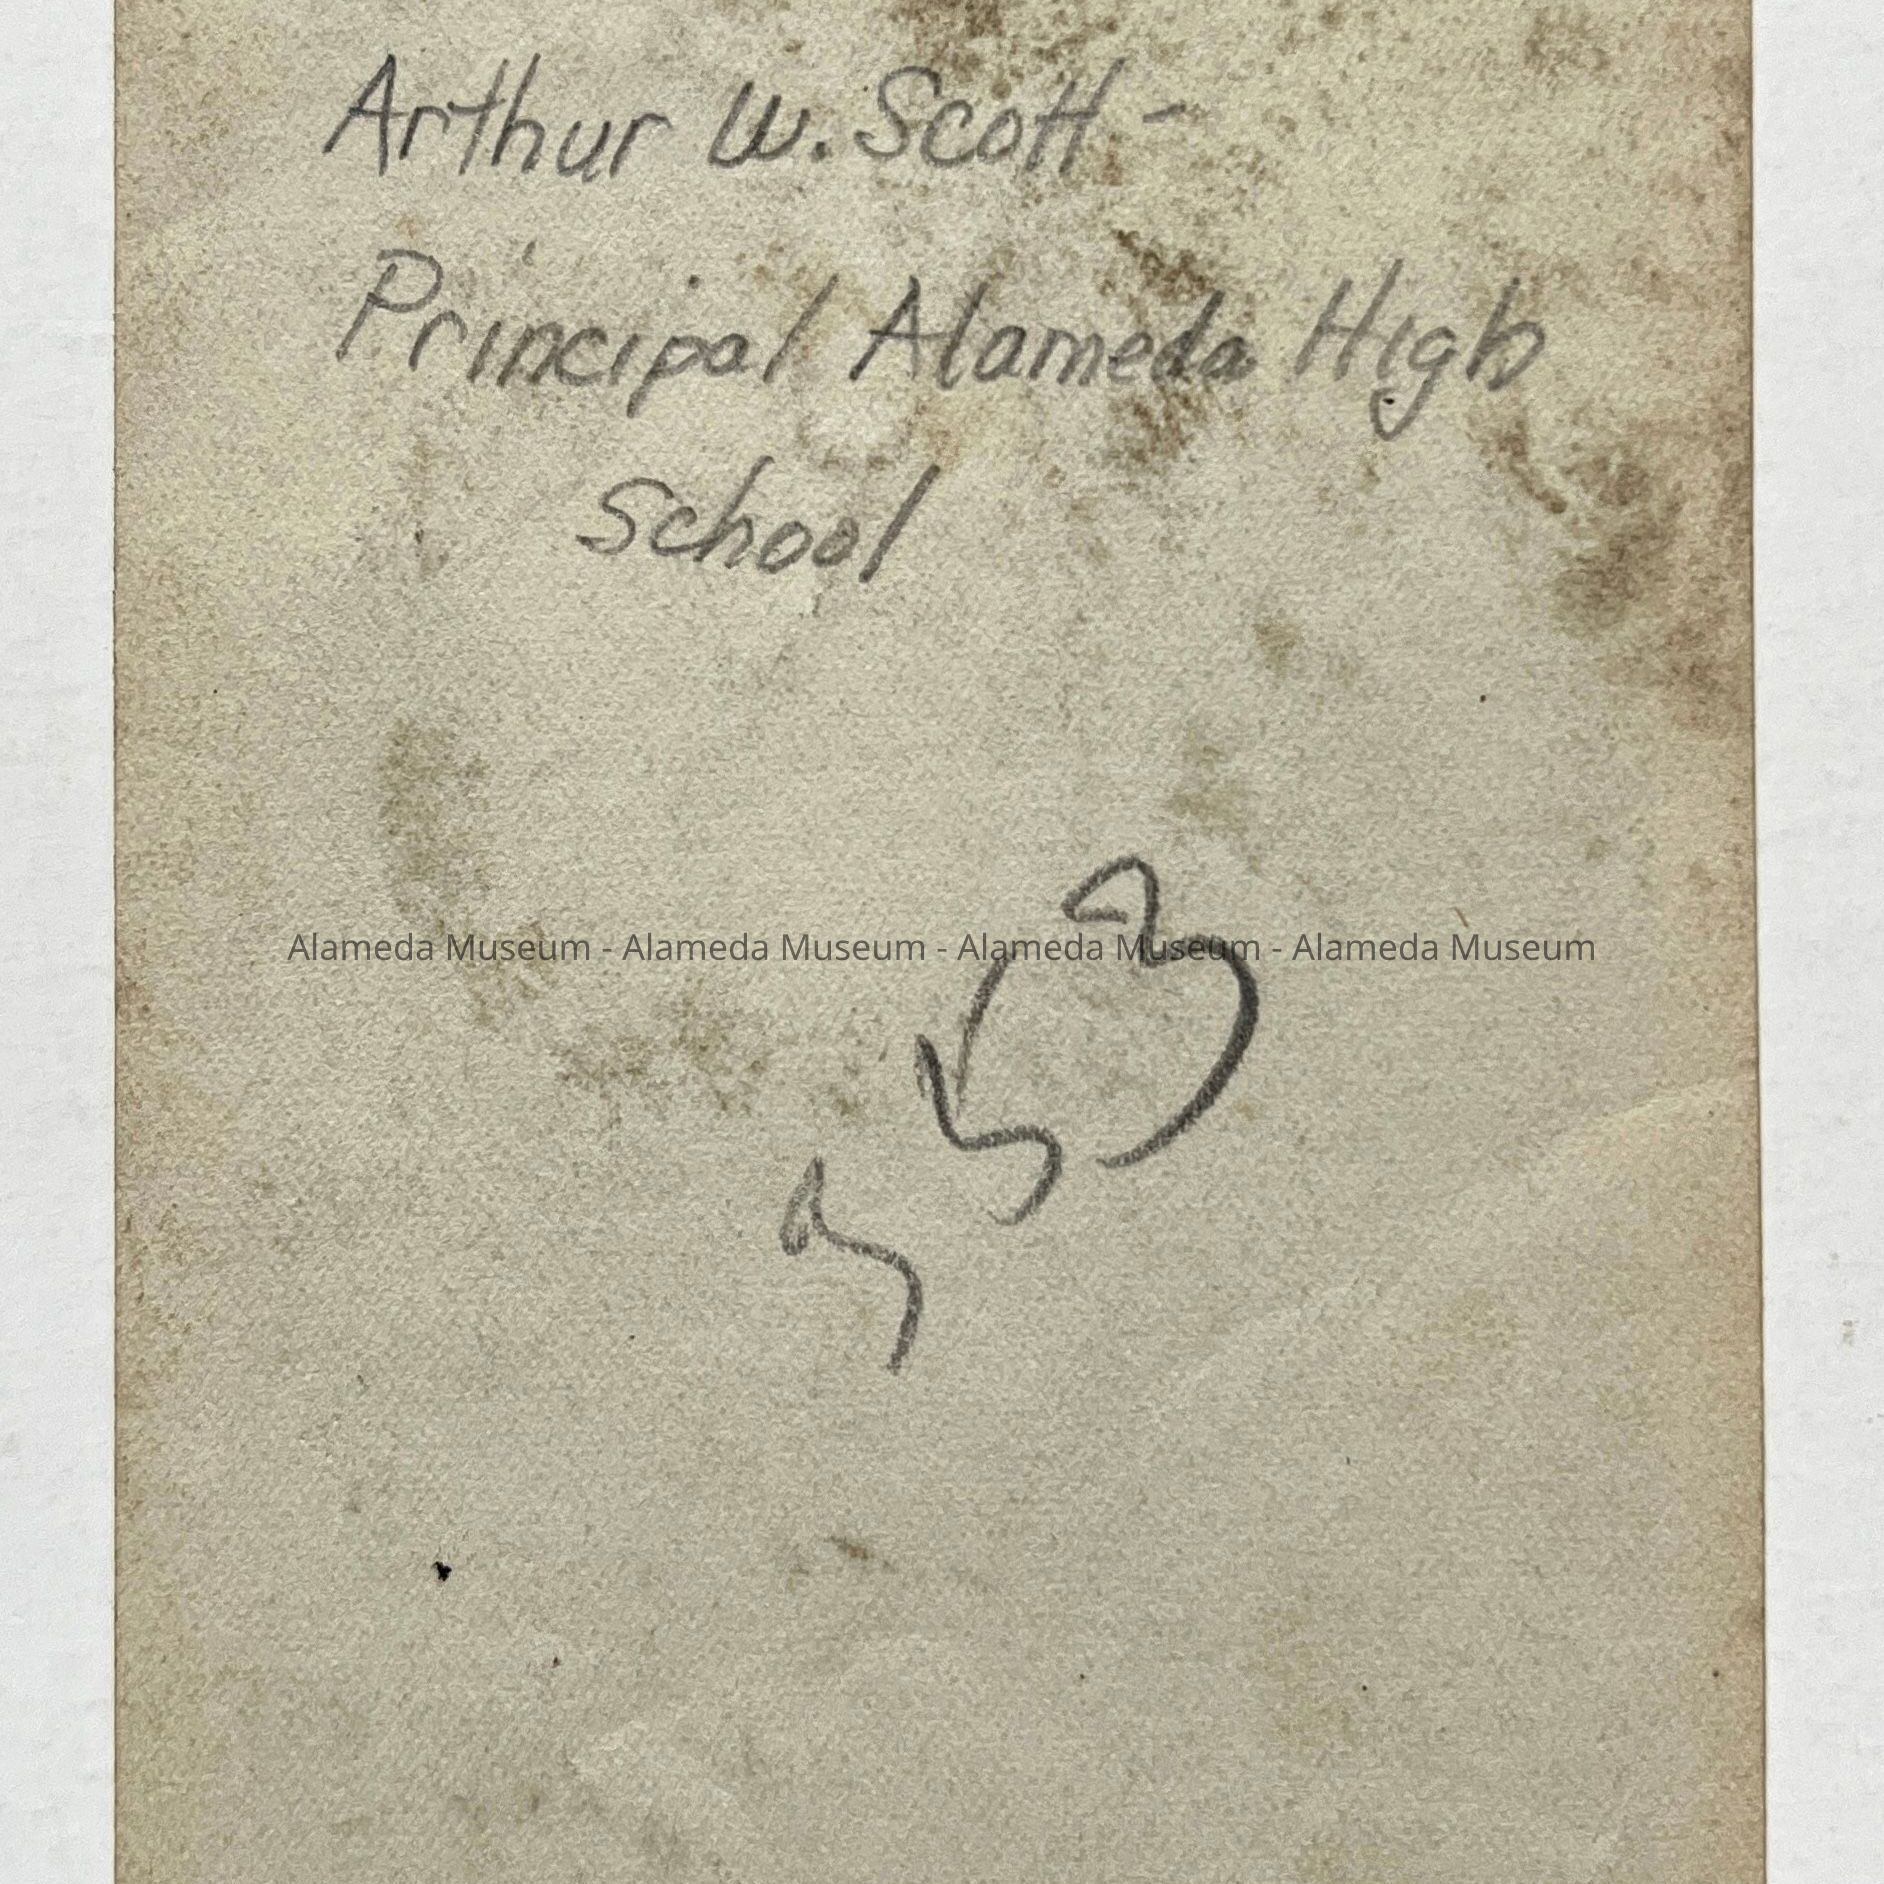 Arthur W. Scott -
Principal Alameda High
School
Alameda Museum - Alameda Museum - Alameda Museum - Alameda Museum